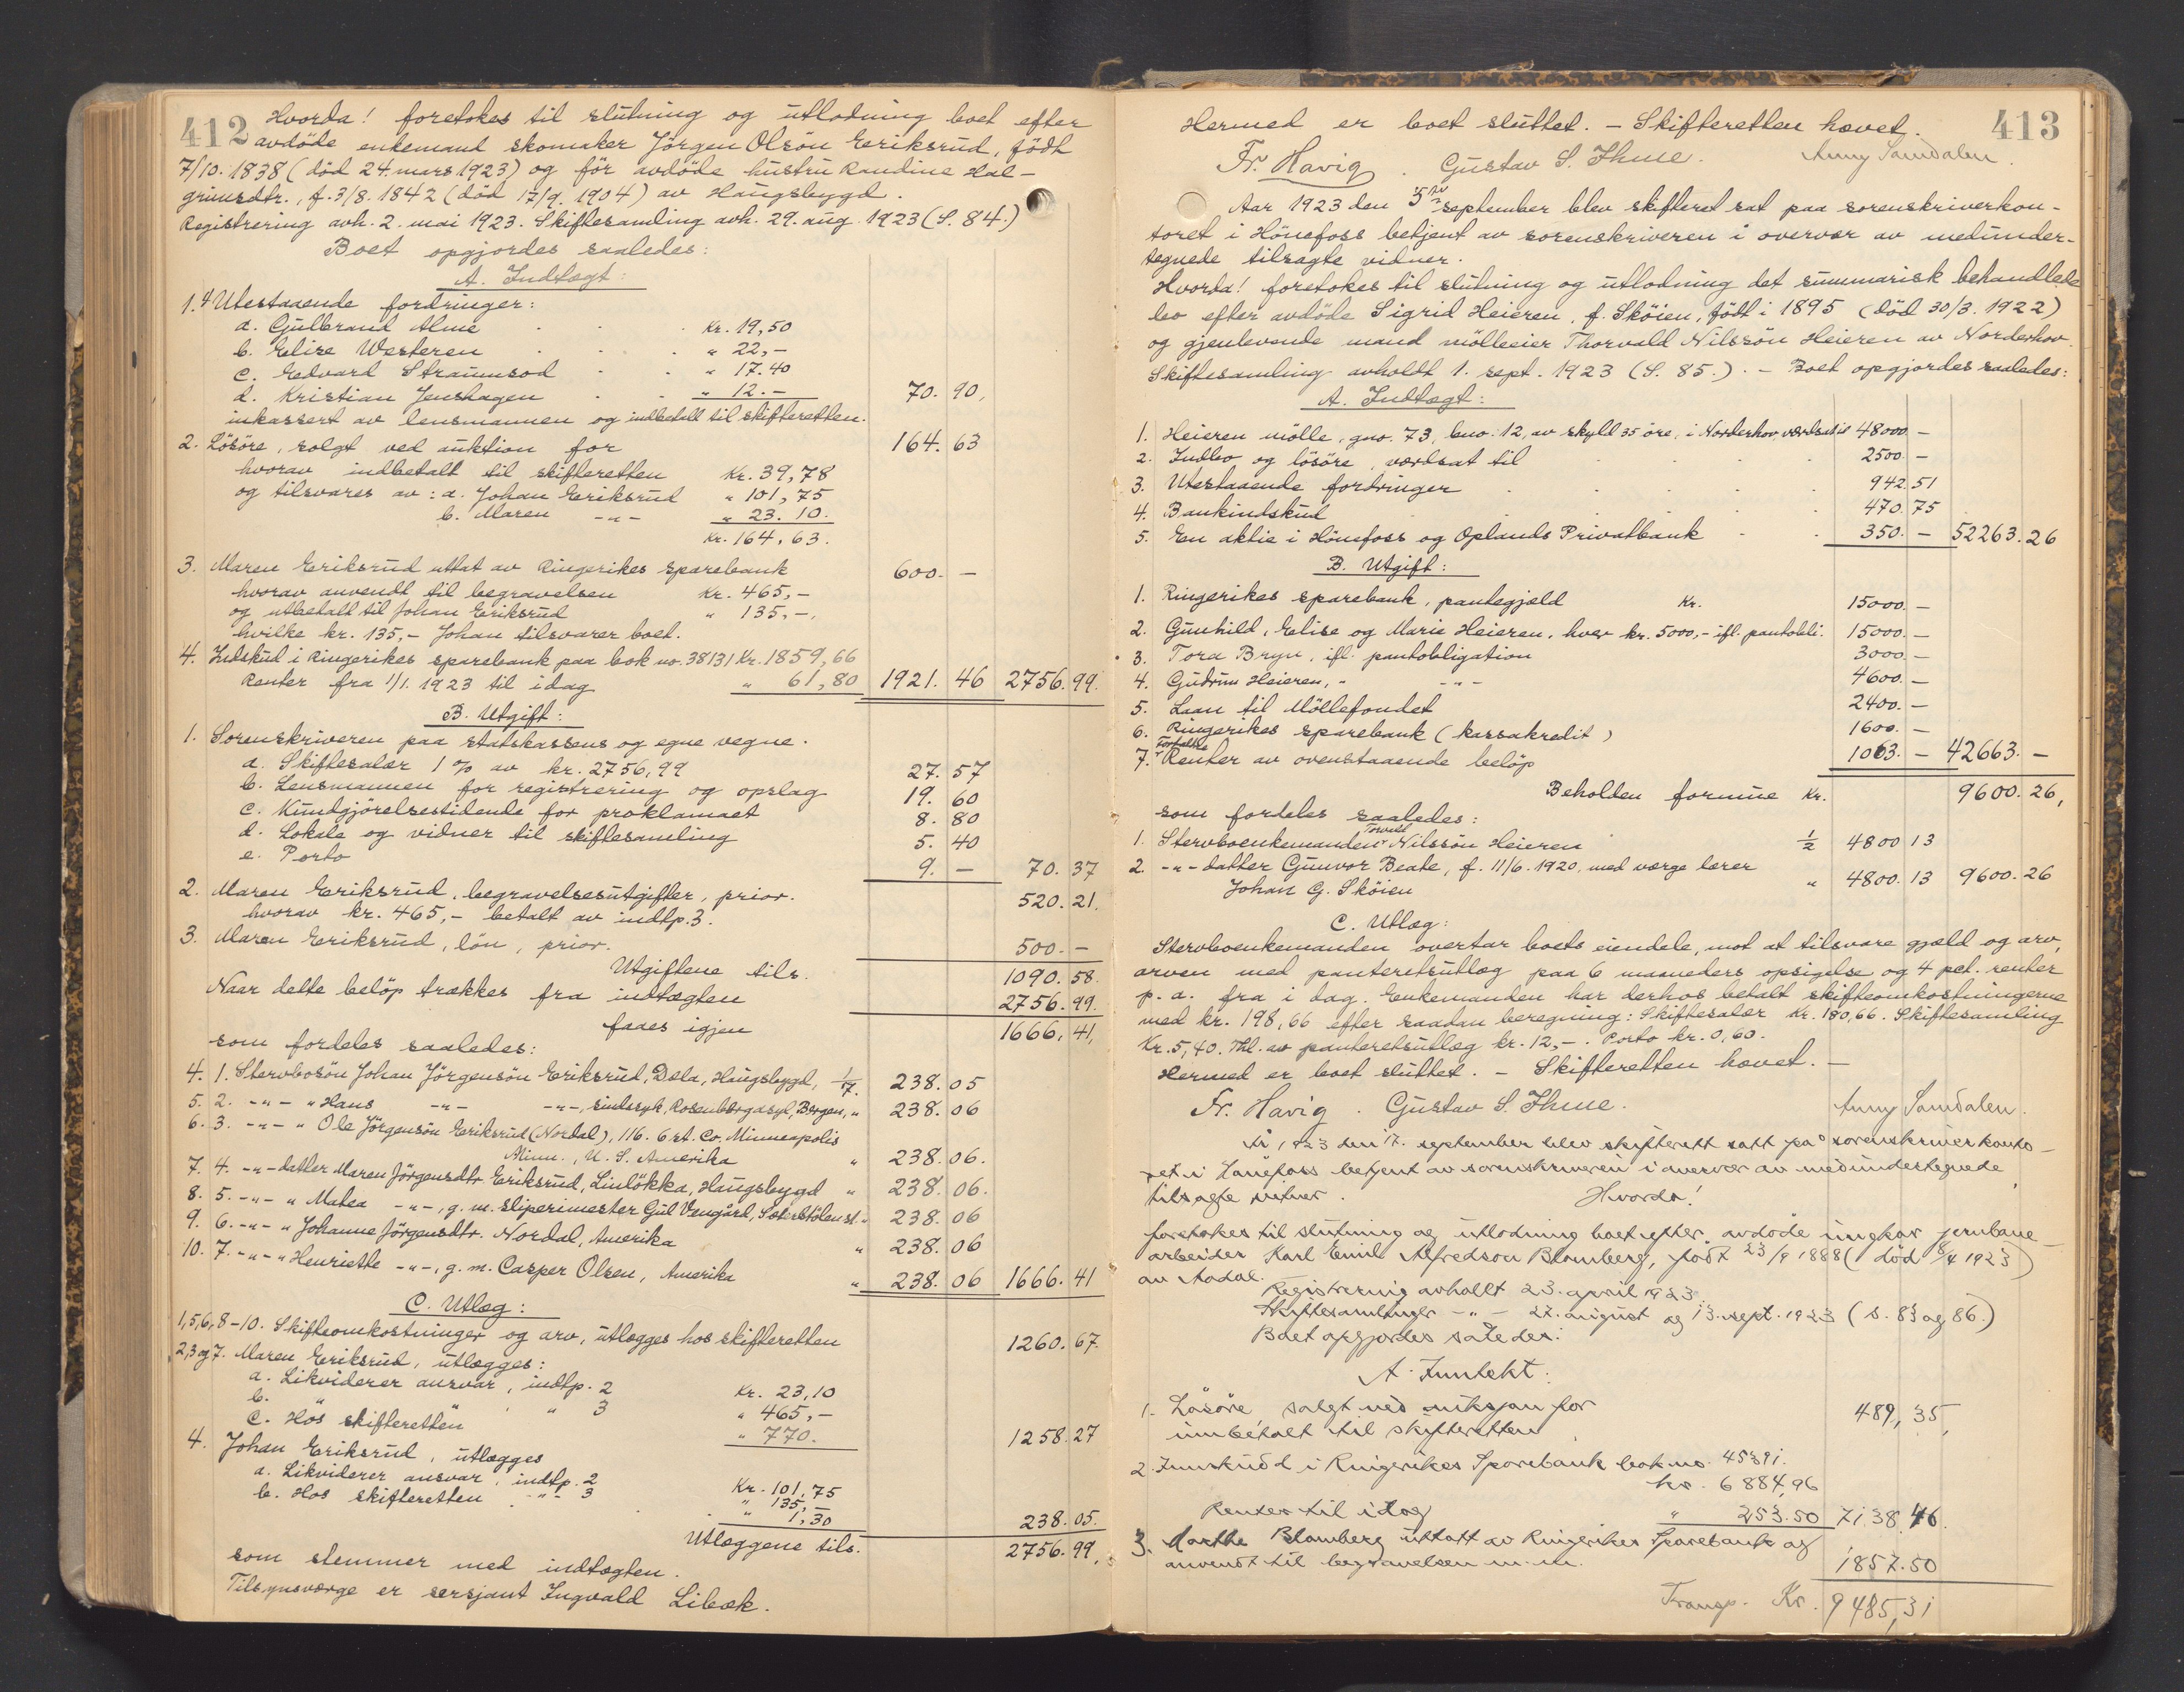 412 Hvorda! foretokes til slutning og utlodning boet efter
avdöde enkemand skomaker Jörgen Olsön Eriksrud, födt
7/10. 1838 (död 24. mars 1923) og för avdöde hustru Randine Hal-
grimsdtr., f. 3/8. 1842 (död 17/9. 1904) av Haugsbygd.
Registrering avh. 2. mai 1923. Skiftesamling avh. 29. aug. 1923 (S. 84.)
Boet opgjordes saaledes:
A. Indtægt:
1. Utestaaende fordringer:
a. Gulbrand Alme Kr. 19,50
b. Elise Westeren " 22,-
c. Edvard Straumsod " 17.40
d. Kristian Jenshagen " 12.- 70. 90.
inkassert av lensmannen og indbetalt til skifteretten.
2. Lösöre, solgt ved auktion for 164. 63
hvorav indbetalt til skifteretten Kr. 39,78
og tilsvares av: a. Johan Eriksrud " 101,75
b. Maren -"- " 23. 10.
Kr. 164,63.
3. Maren Eriksrud uttat av Ringerikes sparebank 600. -
hvorav anvendt til begravelsen Kr. 465,-
og utbetalt til Johan Eriksrud " 135,-,
hvilke kr. 135,- Johan tilsvarer boet.
4. Indskud i Ringerikes sparebank paa bok no. 38131 Kr. 1859,66
Renter fra 1/1. 1923 til idag " 61,80 1921. 46 2756. 99.
B. Utgift:
1. Sorenskriveren paa statskassens og egne vegne.
a. Skiftesalær 1 % av kr. 2756,99 27. 57
b. Lensmannen for registrering og opslag 19. 60
c. Kundgjörelsestidende for proklamaet 8. 80
d. Lokale og vidner til skiftesamling 5. 40
e. Porto 9. - 70. 37
2. Maren Eriksrud, begravelsesutgifter, prior. 520. 21.
hvorav kr. 465,- betalt av indtp. 3.
3. Maren Eriksrud, lön, prior. 500. -
Utgiftene tils. 1090. 58.
Naar dette belöp trækkes fra indtægten 2756. 99.
faaes igjen 1666, 41,
som fordeles saaledes:
4. 1. Stervbosön Johan Jörgensön Eriksrud, Dæla, Haugsbygd, 1/7. 238. 05
5. 2. -"- " Hans -"- -"-, sindssyk, Rosenbergasyl, Bergen, " 238. 06
6. 3. -"- " Ole Jörgensön Eriksrud (Nordal), 116. 6 st. Co. Minneapolis
Minn., U. S. Amerika " 238. 06.
7. 4. -"- datter Maren Jörgensdtr Eriksrud, Linlökka, Haugsbygd " 238. 06.
8. 5. -"- " Matea -"-, g. m. sliperimester Gul Vengård, Sæterstölen st. " 238. 06
9. 6. -"- " Johanne Jörgensdtr. Nordal, Amerika " 238. 06
10. 7. -"- " Henriette -"-, g. m. Casper Olsen, Amerika " 238. 06 1666. 41
C. Utlæg:
1,5,6,8-10. Skifteomkostninger og arv, utlægges hos skifteretten 1260. 67.
2,3 og 7. Maren Eriksrud, utlægges:
a. Likviderer ansvar, indtp. 2 Kr. 23,10
b. " " " 3 " 465,-
c. Hos skifteretten " 770. 1258. 27
4. Johan Eriksrud, utlægges
a. Likviderer ansvar, indtp. 2 Kr. 101,75
-"- 3 " 135,-
b. Hos skifteretten " 1,30 238. 05.
Utlæggene tils. 2756. 99,
som stemmer med indtægten.
Tilsynsværge er sersjant Ingvald Libæk.
413
Hermed er boet sluttet. - Skifteretten hævet.
Fr. Havig. Gustav S. Ihme. Anny Samdalen.
Aar 1923 den 5te september blev skifteret sat paa sorenskriverkon-
toret i Hönefoss betjent av sorenskriveren i overvær av medunder-
tegnede tilsagte vidner.
Hvorda! foretokes til slutning og utlodning det summarisk behandlede
bo efter avdöde Sigrid Heieren, f. Sköien, födt i 1895 (död 30/3. 1922)
og gjenlevende mand mölleeier Thorvald Nilssön Heieren av Norderhov.
Skiftesamling avholdt 1. sept. 1923 (S. 85.). - Boet opgjordes saaledes:
A. Indtægt:
1. Heieren mölle, gno. 73, bno. 12, av skyld 35 öre, i Norderhov, værdsat til 48000. -
2. Indbo og lösöre, værdsat til 2500. -
3. Utestaaende fordringer 942. 51
4. Bankindskud 470. 75
5. En aktie i Hönefoss og Oplands Privatbank 350. - 52263. 26
B. Utgift:
1. Ringerikes sparebank, pantegjæld Kr. 15000. -
2. Gunhild, Elise og Marie Heieren, hver kr. 5000,- ifl. pantobli. 15000. -
3. Tora Bryn, ifl. pantobligation 3000. -
4. Gudrun Heieren, " -"- 4600. -
5. Laan til Möllefondet 2400. -
6. Ringerikes sparebank (kassakredit) 1600. -
7. Forfaldte Renter av ovenstaaende belöp 1063. - 42663. -
Beholden formue Kr. 9600. 26,
som fordeles saaledes:
1. Stervboenkemanden Torvald Nilssön Heieren 1/2 4800 13
2. -"- datter Gunvor Beate, f. 11/6. 1920, med værge lærer
Johan G. Sköien " 4800. 13 9600. 26
C. Utlæg:
Stervboenkemanden overtar boets eiendele, mot at tilsvare gjæld og arv,
arven med panteretsutlæg paa 6 maaneders opsigelse og 4 pct. renter
p. a. fra i dag. Enkemanden har derhos betalt skifteomkostningerne
med kr. 198,66 efter saadan beregning: Skiftesalær kr. 180,66. Skiftesamling
Kr. 5,40. Thl. av panteretsutlæg kr. 12,-. Porto kr. 0,60.
Hermed er boet sluttet. - Skifteretten hævet. -
Fr. Havig. Gustav S. Ihme. Anny Samdalen.
År 1923 den 17. september blev skifterett satt på sorenskriverkonto-
ret i Hönefoss betjent av sorenskriveren i overvær av medundertegnede
tilsagte vitner. Hvorda!
foretokes til slutning og utlodning boet efter avdöde ungkar jernbane-
arbeider Karl Emil Alfredson Blomberg, födt 23/9 1888 (död 8/4 1923)
av Aadal.
Registrering avholdt 23. april 1923.
Skiftesamlinger -"- 27. august og 13. sept. 1923 (s. 83 og 86.)
Boet opgjordes således:
A. Inntekt:
1. Lösöre solgt ved auksjon for 489, 35,
innbetalt til skifteretten
2. Innskudd i Ringerikes Sparebank bok no. 45391.
kr. 6884,96
Renter til idag " 253.50 7138, 46.
3. Marthe Blomberg uttatt av Ringerikes Sparebank og
anvendt til begravelsen m.m. 1857.50
Transp. Kr. 9485,31